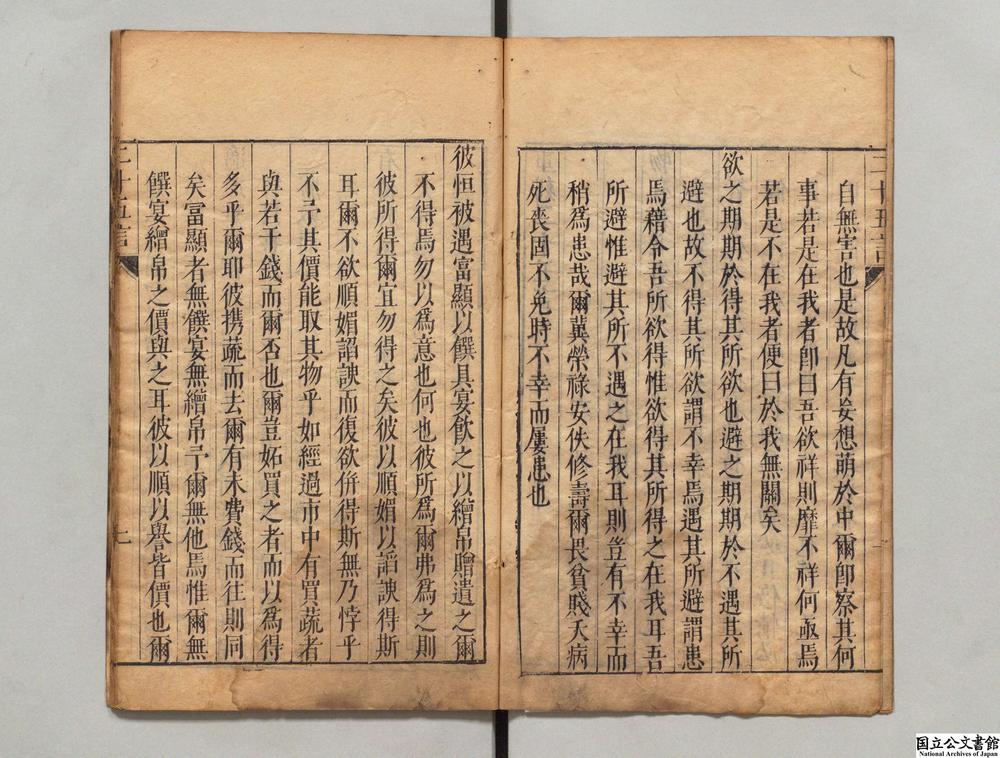 自無害也是故凡有妄想萌於中爾卽察其何
事若是在我者卽曰吾欲祥則靡不祥何亟焉
若是不在我者便曰於我無關矣
欲之期期於得其所欲也避之期期於不遇其所
避也故不得其所欲謂不幸焉遇其所避謂患
焉藉令吾所欲得惟欲得其所得之在我耳吾
所避惟避其所不遇之在我耳則豈有不幸而
稍爲患哉爾冀榮祿安佚修壽爾畏貧賤夭病
死喪固不免時不幸而屢患也
二十五言
彼恒被遇富顯以饌具宴飲之以繒帛贈遺之爾
不得焉勿以爲意也何也彼所爲爾弗爲之則
彼所得爾宜勿得之矣彼以順媚以諂諛得斯
耳爾不欲順媚諂諛而復欲併得斯無乃悖乎
不予其價能取其物乎如經過市中有買蔬者
與若干錢而爾否也爾豈妬買之者而以爲得
多乎爾耶彼携蔬而去爾有未費錢而往則同
矣富顯者無饌宴無繒帛予爾無他焉惟爾無
饌宴繒帛之價與之耳彼以順以譽皆價也爾
二十五言
七
国立公文書館
National Archives of Japan